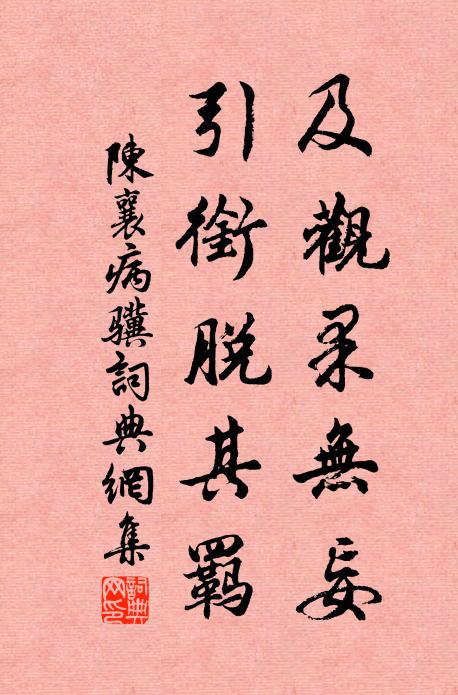 及觀果無妄
引銜脫其羈
陳襄病驥詞典網集
詞典网印